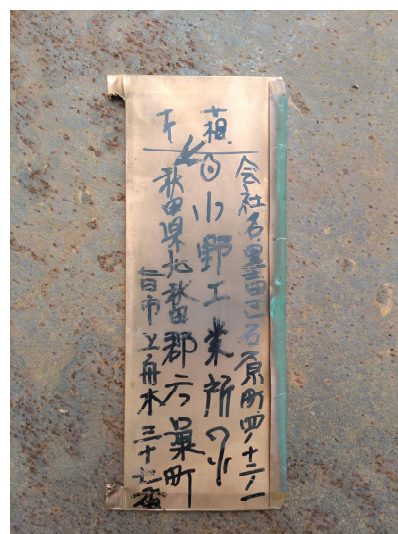 会社名墨田区石原町四ノ十二ノ一
小野工業所
秋田県北秋田郡六
町
七日市上舟木三十七番